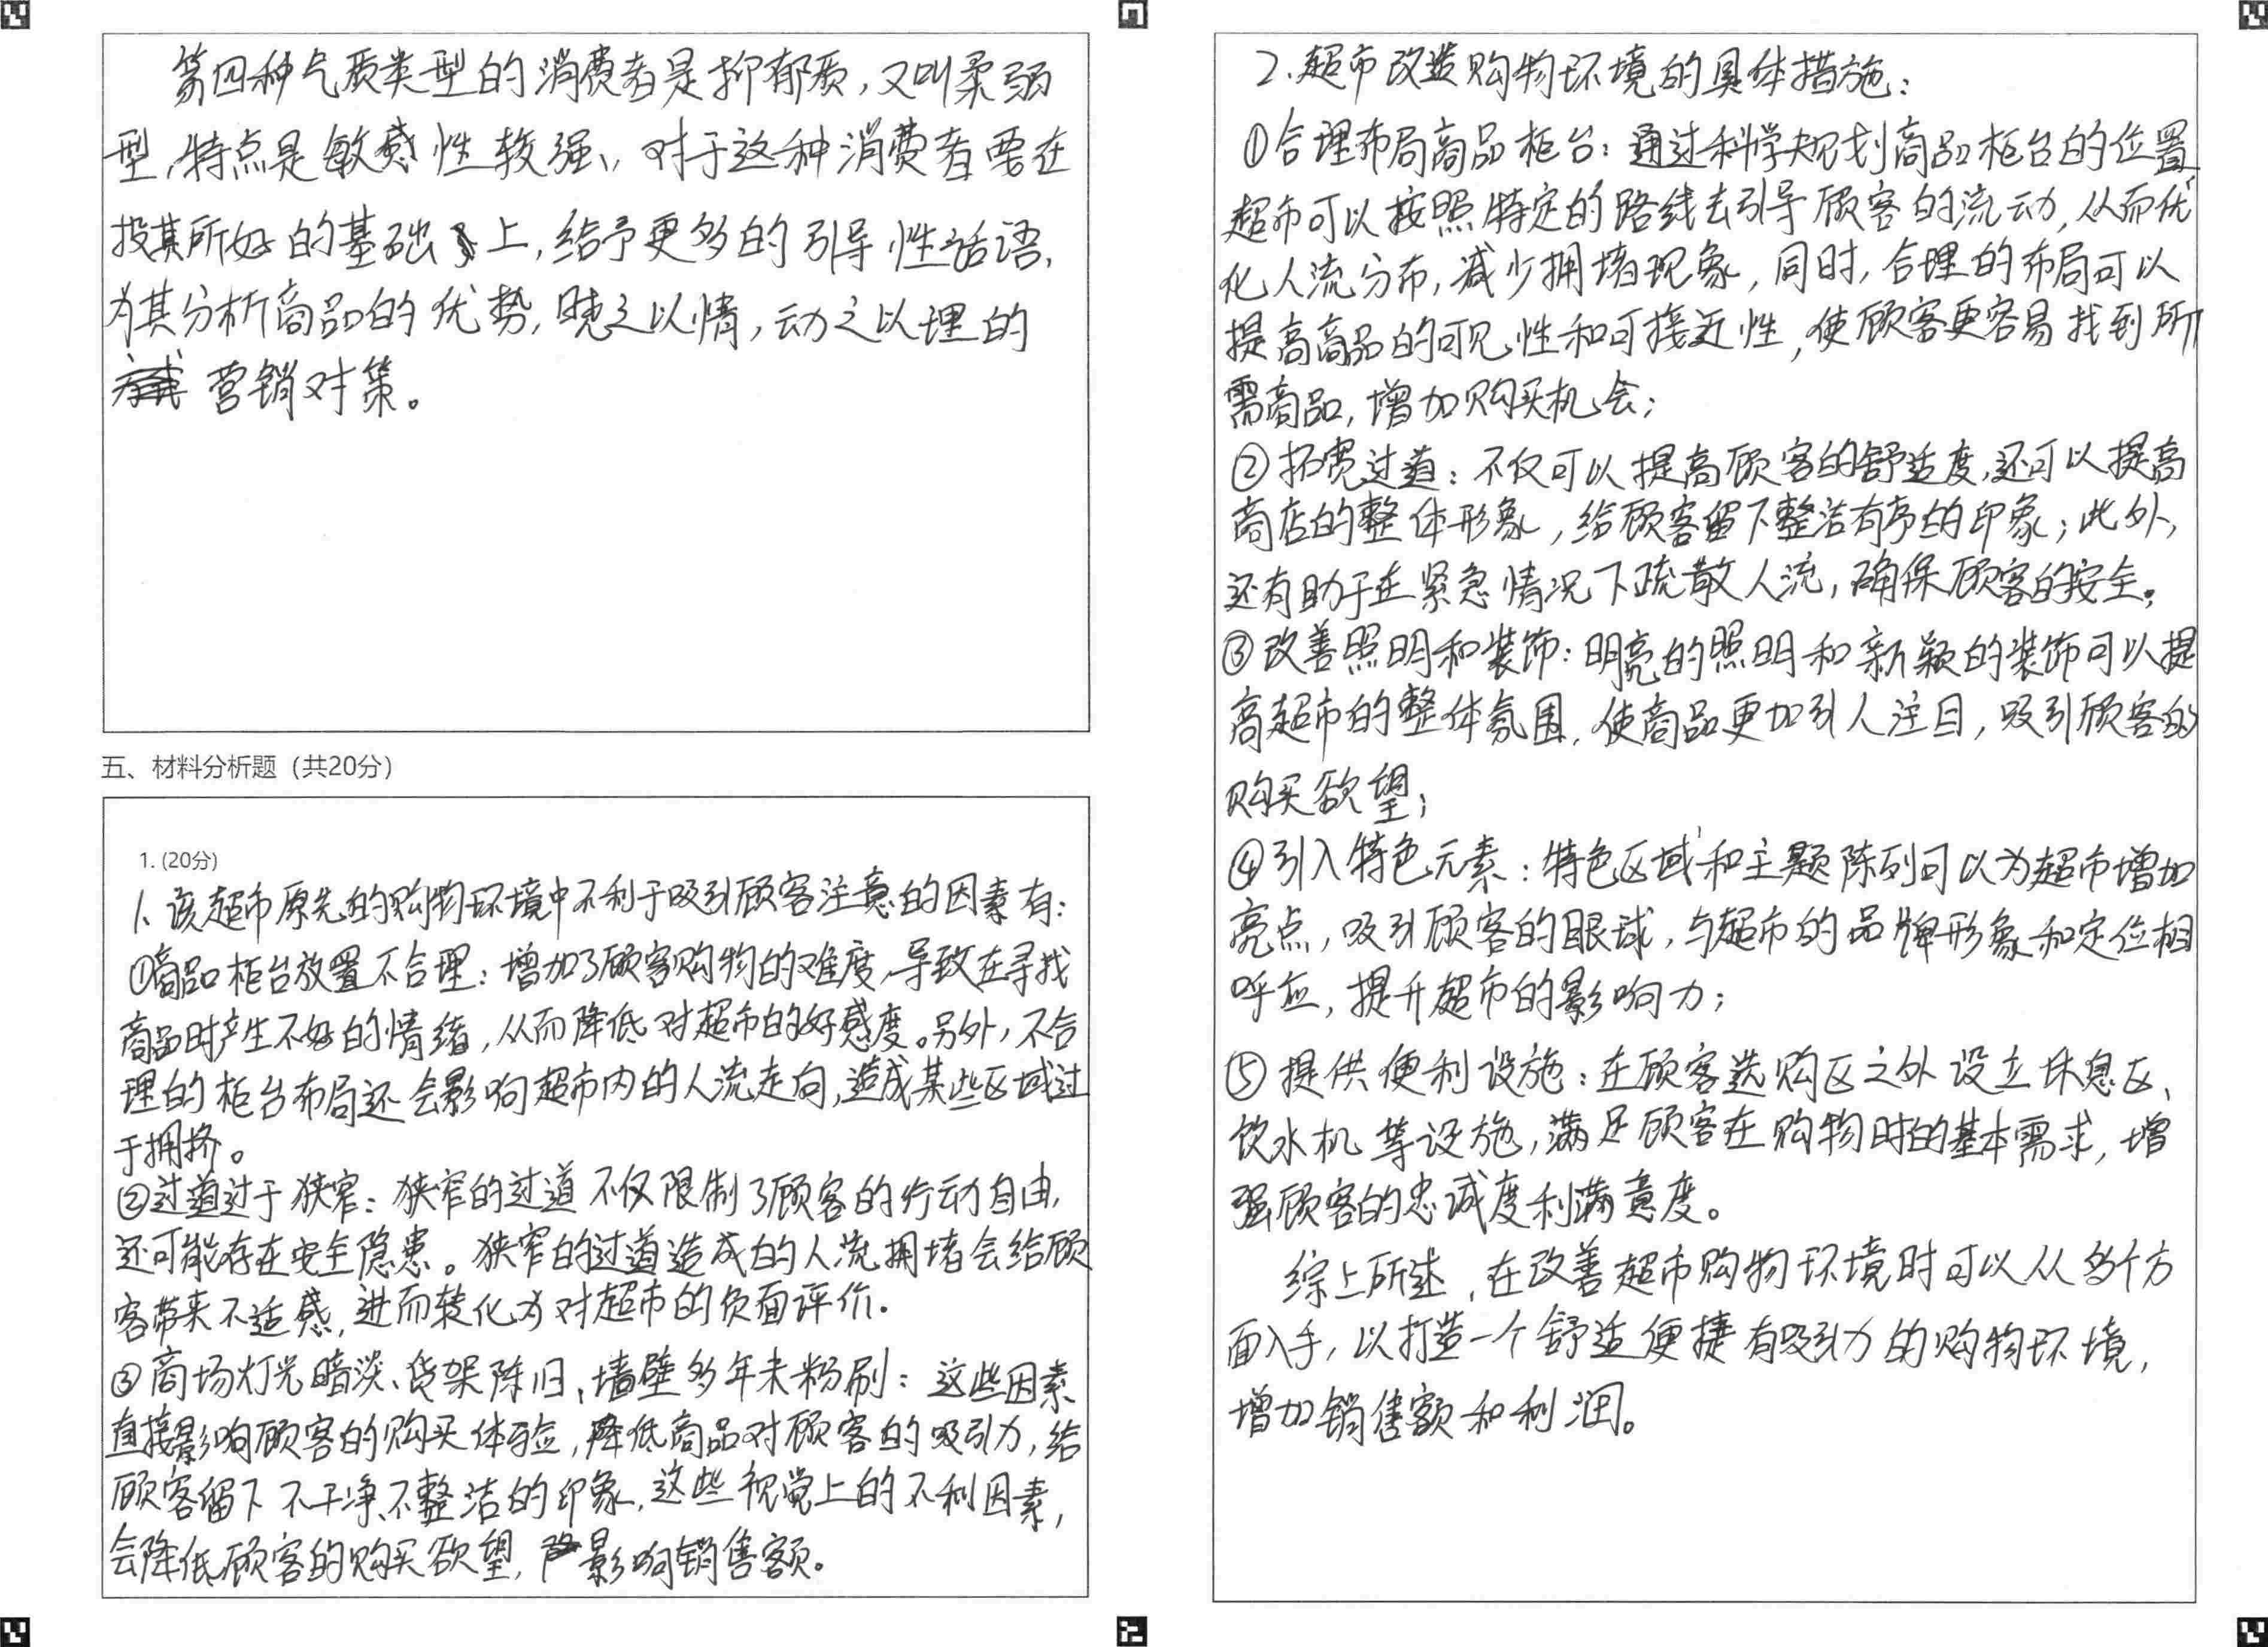 第四种气质类型的消费者是抑郁质，又叫柔弱
型，特点是敏感性较强，对于这种消费者要在
投其所好的基础上，给予更多的引导性话语，
为其分析商品的优势，晓之以情，动之以理的
营销对策。
五、材料分析题（共20分）
1. (20分)
1、该超市原先的购物环境中不利于吸引顾客注意的因素有：
①商品柜台放置不合理：增加了顾客购物的难度，导致在寻找
商品时产生不好的情绪，从而降低对超市的好感度。另外，不合
理的柜台布局还会影响超市内的人流走向，造成某些区域过
于拥挤。
②过道过于狭窄：狭窄的过道不仅限制了顾客的行动自由，
还可能存在安全隐患。狭窄的过道造成的人流拥堵会给顾
客带来不适感，进而转化为对超市的负面评价。
③商场灯光暗淡、货架陈旧、墙壁多年未粉刷：这些因素
直接影响顾客的购买体验，降低商品对顾客的吸引力，给
顾客留下不干净、不整洁的印象，这些视觉上的不利因素，
会降低顾客的购买欲望，影响销售额。
2.超市改造购物环境的具体措施：
①合理布局商品柜台：通过科学规划商品柜台的位置，
超市可以按照特定的路线去引导顾客的流动，从而优
化人流分布，减少拥堵现象，同时，合理的布局可以
提高商品的可见性和可接近性，使顾客更容易找到所
需商品，增加购买机会；
②拓宽过道：不仅可以提高顾客的舒适度，还可以提高
商店的整体形象，给顾客留下整洁有序的印象；此外，
还有助于在紧急情况下疏散人流，确保顾客的安全；
③改善照明和装饰：明亮的照明和新颖的装饰可以提
高超市的整体氛围，使商品更加引人注目，吸引顾客的
购买欲望；
④引入特色元素：特色区域和主题陈列可以为超市增加
亮点，吸引顾客的眼球，与超市的品牌形象和定位相
呼应，提升超市的影响力；
⑤提供便利设施：在顾客选购区之外设立休息区、
饮水机等设施，满足顾客在购物时的基本需求，增
强顾客的忠诚度利满意度。
综上所述，在改善超市购物环境时可以从多个方
面入手，以打造一个舒适便捷有吸引力的购物环境，
增加销售额和利润。